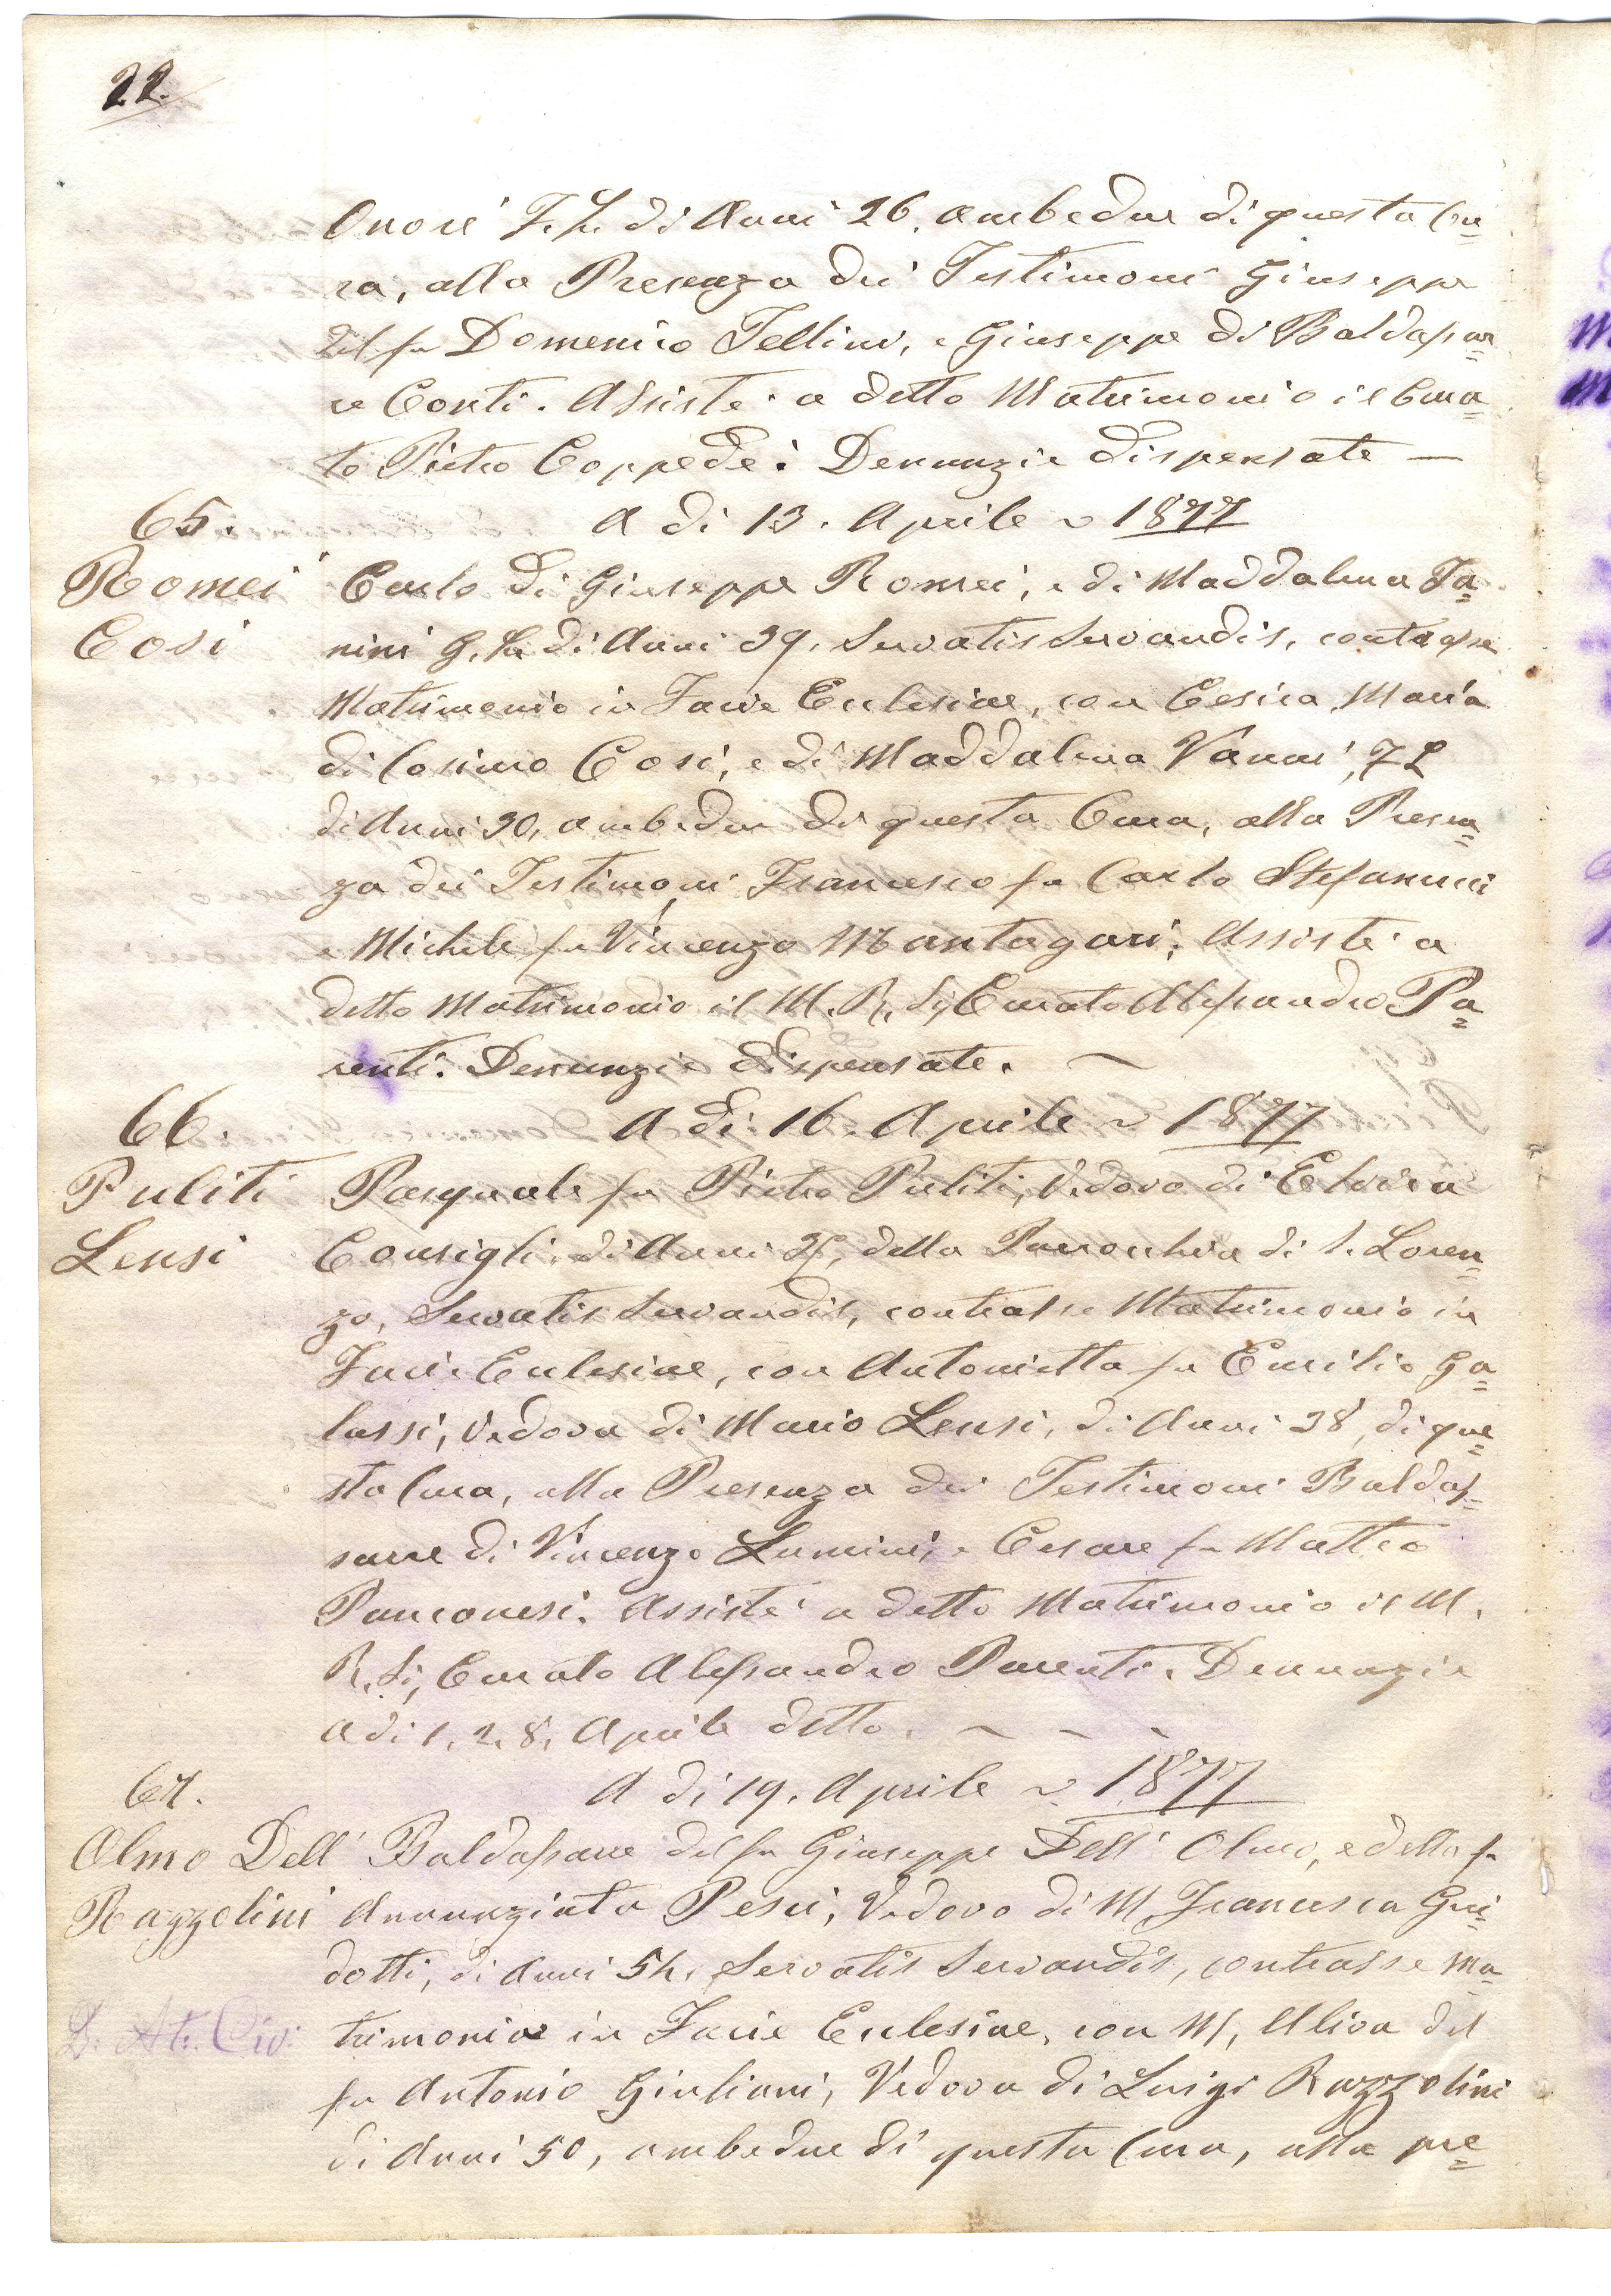 22.
Onori F. L. di Anni 26. ambedue di questa Cu=
ra, alla Presenza dei Testimoni Giuseppe
del fu Domenico Tellini, e Giuseppe di Baldassar=
re Conti. Assistè a detto Matrimonio il Cura=
to Pietro Coppedè: Denunzie dispensate —
65. A di 13. Aprile ~ 1877
Romei Carlo di Giuseppe Romei, e di Maddalena Ta=
Cosi nini G. L. di Anni 39. Servatis Servandis, contrasse
Matrimonio in Facie Ecclesiae, con Cesira Maria
di Cosimo Cosi, e di Maddalena Vanni, F L
di Anni 30, ambedue di questa Cura, alla Presen=
za dei Testimoni Francesco fu Carlo Stefanucci
e Michele fu Vincenzo Mantagari; Assistè a
detto Matrimonio il M. R. Sig Curato Alessandro Pa=
renti. Denunzie dispensate. ~
66. A di 16. Aprile ~ 1877
Puliti Pasquale fu Pietro Puliti, Vedovo di Elvira
Lensi Consigli, di Anni della Parrocchia di S. Loren=
zo, Servatis Servandis, contrasse Matrimonio in
Facie Ecclesiae, con Antonietta fu Emilio Ga=
lassi, Vedova di Mario Lensi, di Anni 38, di que=
sta Cura, alla Presenza dei Testimoni Baldas=
sarre di Vincenzo Lumini, e Cesare fu Matteo
Panconesi. Assistè a detto Matrimonio il M.
R. Si, Curato Alessandro Parenti. Denunzie
a di 1. 2. 8. Aprile detto. ~ ~ ~
67. A di 19. Aprile ~ 1877
Olmo Dell' Baldassarre del fu Giuseppe Dell' Olmo, e della fu
Razzolini Annunziata Pesci, Vedovo di M. Francesca Gui=
dotti, di Anni 54. Servatis Servandis, contrasse Ma=
D. At. Civ. trimonio in Facie Ecclesiae, con M. Aliva del
fu Antonio Giuliani, Vedova di Luigi Razzolini
di Anni 50, ambedue di questa Cura, alla pre=